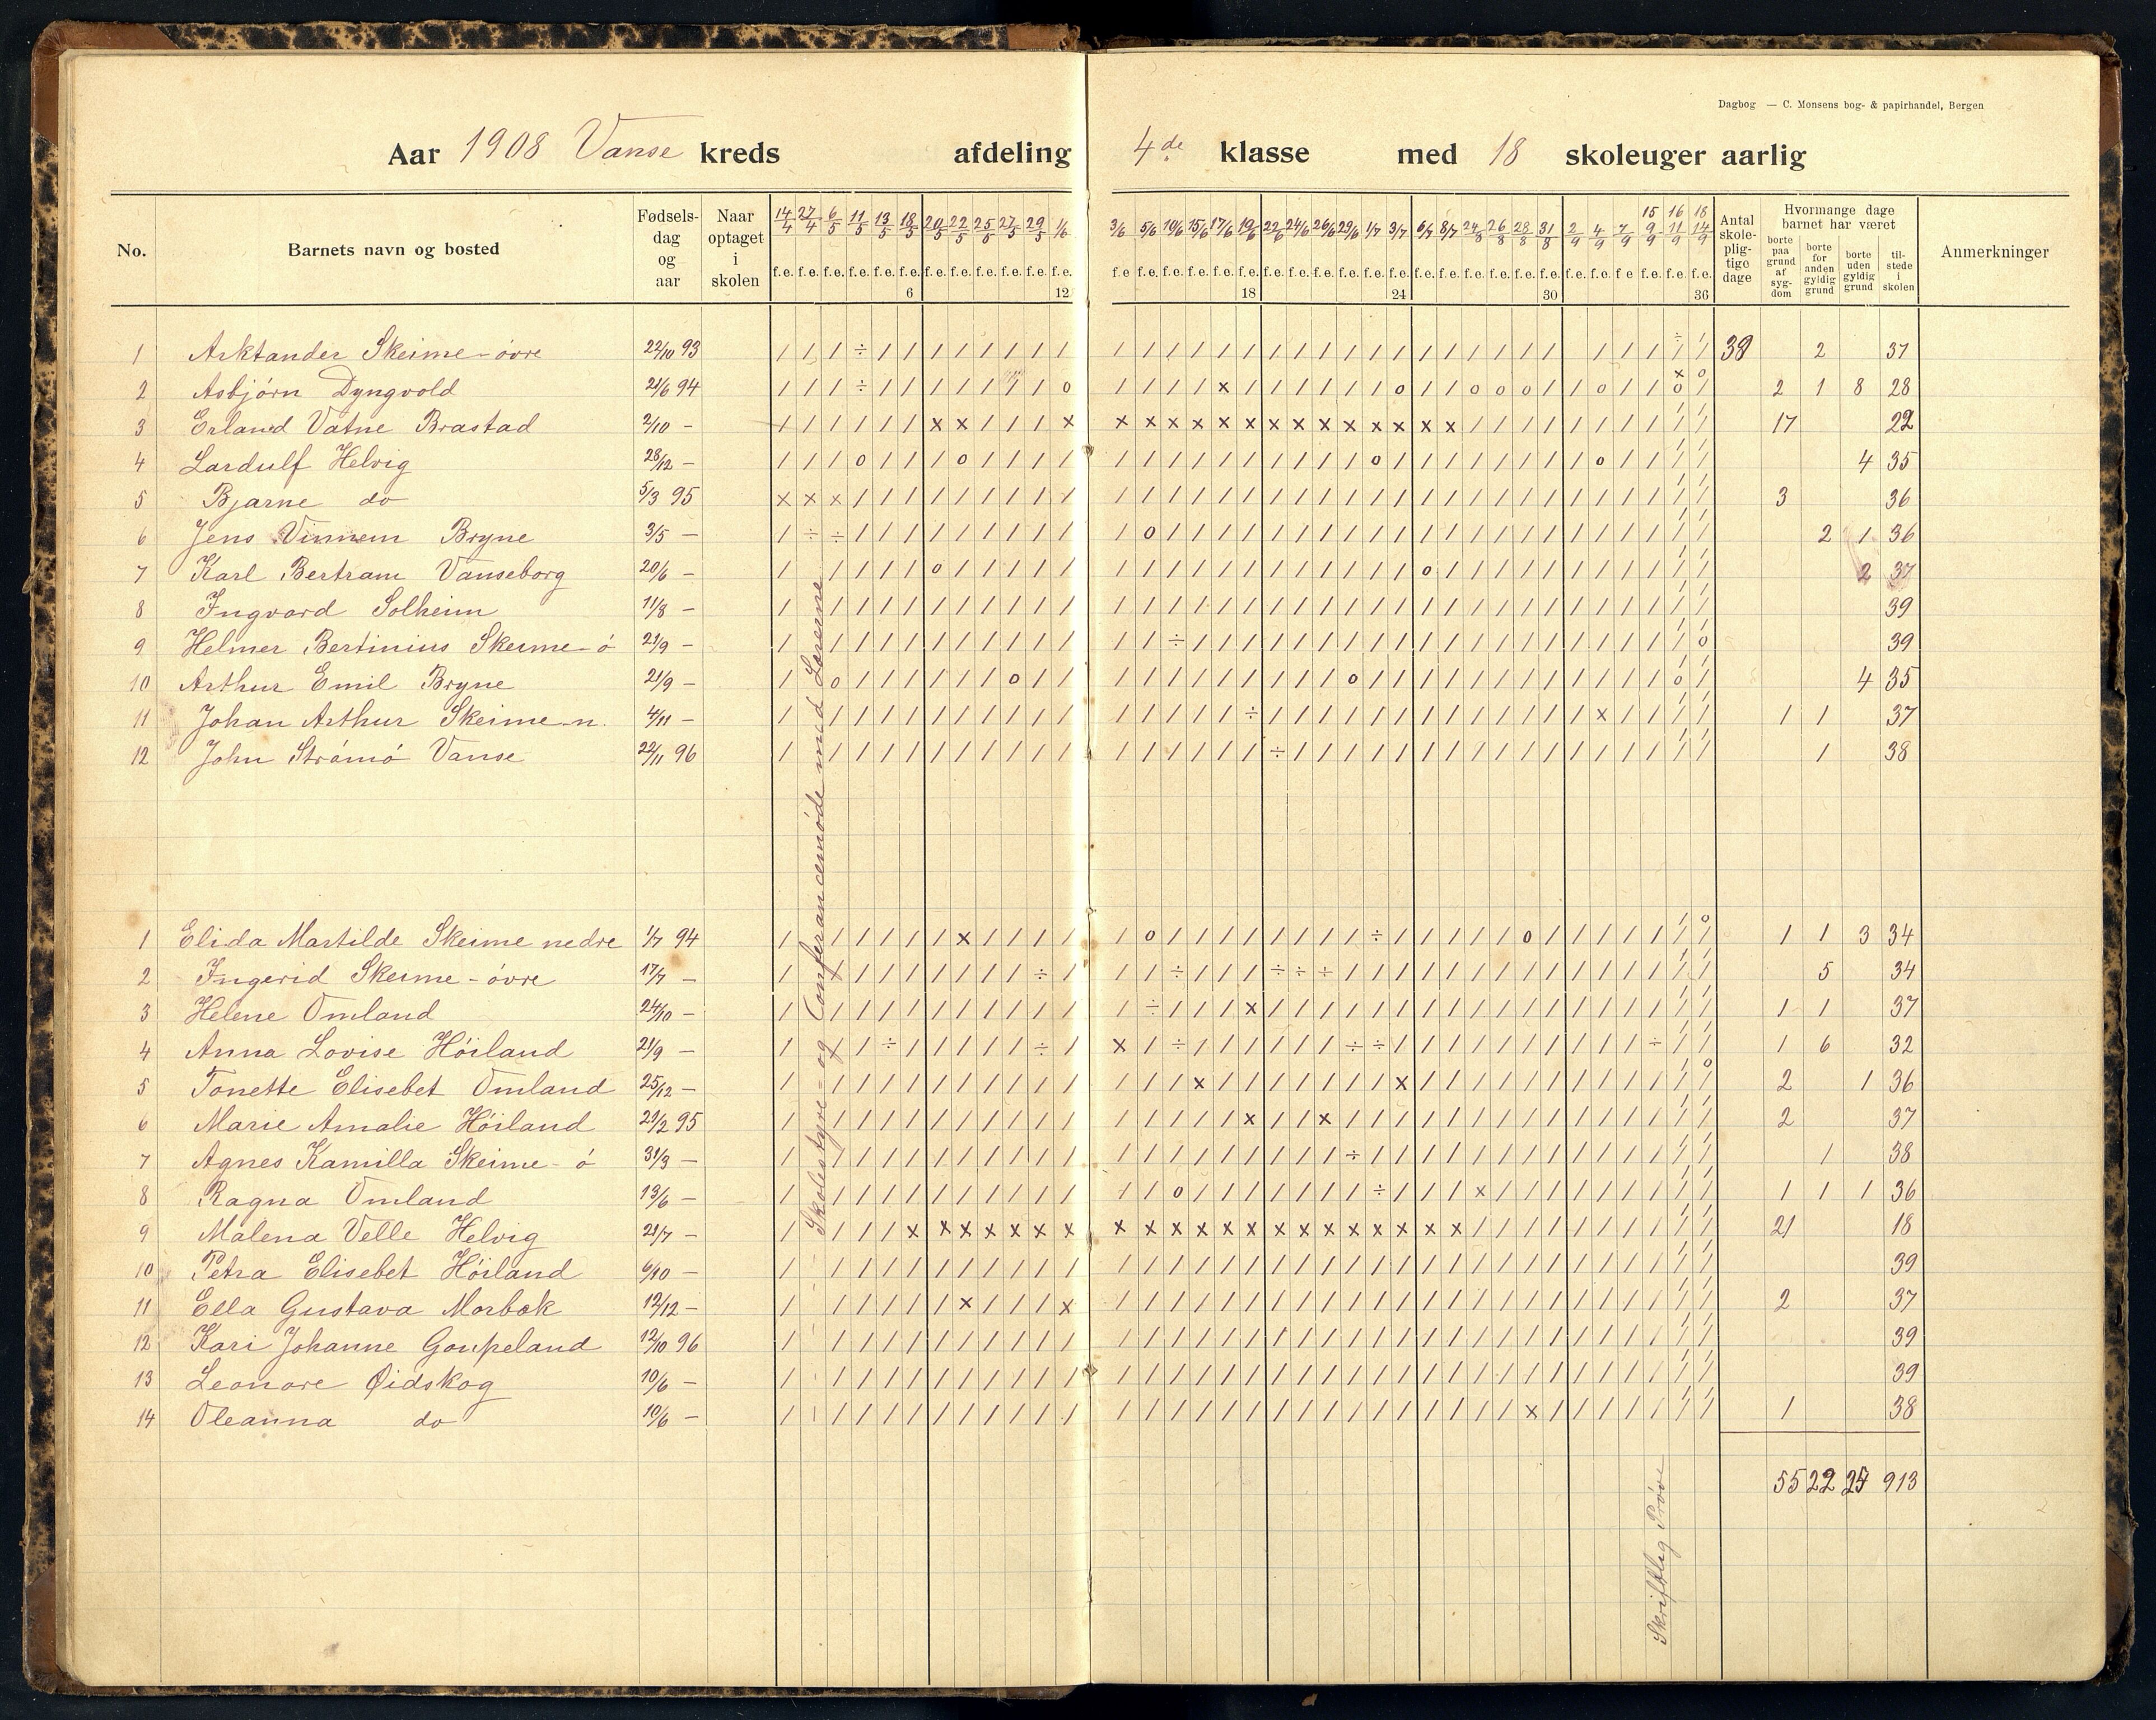 Dagbog — C. Monsens bog- & papirhandel, Bergen
Aar 1908 Vanse kreds afdeling 4de klasse med 18 skoleuger aarlig
No. Barnets navn og bosted Fødsels-dag og aar Naar optaget i skolen 14/4 27/4 6/5 11/5 13/5 18/5 20/5 22/5 25/5 27/5 29/5 1/6 3/6 5/6 10/6 15/6 17/6 19/6 22/6 24/6 26/6 29/6 1/7 3/7 6/7 8/7 24/8 26/8 28/8 31/8 2/9 4/9 7/9 15 9/9 16 11/9 18 14/9 Antal skole-plig-tige dage Hvormange dage barnet har været Anmerkninger
f.e. f.e. f.e. f.e. f.e. f.e. f.e. f.e. f.e. f.e. f.e. f.e. f.e f.e. f.e. f.e. f.e. f.e. f.e. f.e. f.e. f.e. f.e. f.e. f.e. f.e. f.e. f.e. f.e. f.e. f.e. f.e. f e f.e. f.e. f.e. borte paa grund af syg-dom borte for anden gyldig grund borte uden gyldig grund til-stede i skolen
6 12 18 24 30 36
1 Arktander Skeime-övre 22/10 93 39 2 37
2 Asbjörn Dyngvold 21/6 94 2 1 8 28
3 Erland Vatne Brastad 2/10 - 17 22
4 Lardulf Helvig 28/12 - 4 35
5 Bjarne do 5/3 95 3 36
6 Jens Vinnem Bryne 3/5 - 2 1 36
7 Karl Bertram Vanseborg 20/6 - 2 37
8 Ingvard Solheim 11/8 - 39
9 Helmer Bertinius Skeime-ö 21/9 - 39
10 Arthur Emil Bryne 21/9 - 4 35
11 Johan Arthur Skeime-n. 4/11 - 1 1 37
12 John Strömö Vanse 22/11 96 1 38
Skolestyre- og Conferancemöde med Lærerne
1 Elida Martilde Skeime nedre 1/7 94 1 1 3 34
2 Ingerid Skeime-övre 17/7 - 5 34
3 Helene Omland 24/10 - 1 1 37
4 Anna Lovise Höiland 21/9 - 1 6 32
5 Tonette Elisebet Omland 25/12 - 2 1 36
6 Marie Amalie Höiland 21/2 95 2 37
7 Agnes Kamilla Skeime-ö 31/3 - 1 38
8 Ragna Omland 13/6 - 1 1 1 36
9 Malena Velle Helvig 21/7 - 21 18
10 Petra Elisebet Höiland 6/10 - 39
11 Ella Gustava Morbak 12/12 - 2 37
12 Kari Johanne Goupeland 12/10 96 39
13 Leonore Øidskog 10/6 - 39
14 Oleanna do 10/6 - 1 38
55 22 24 913
Skriftlig Pröve